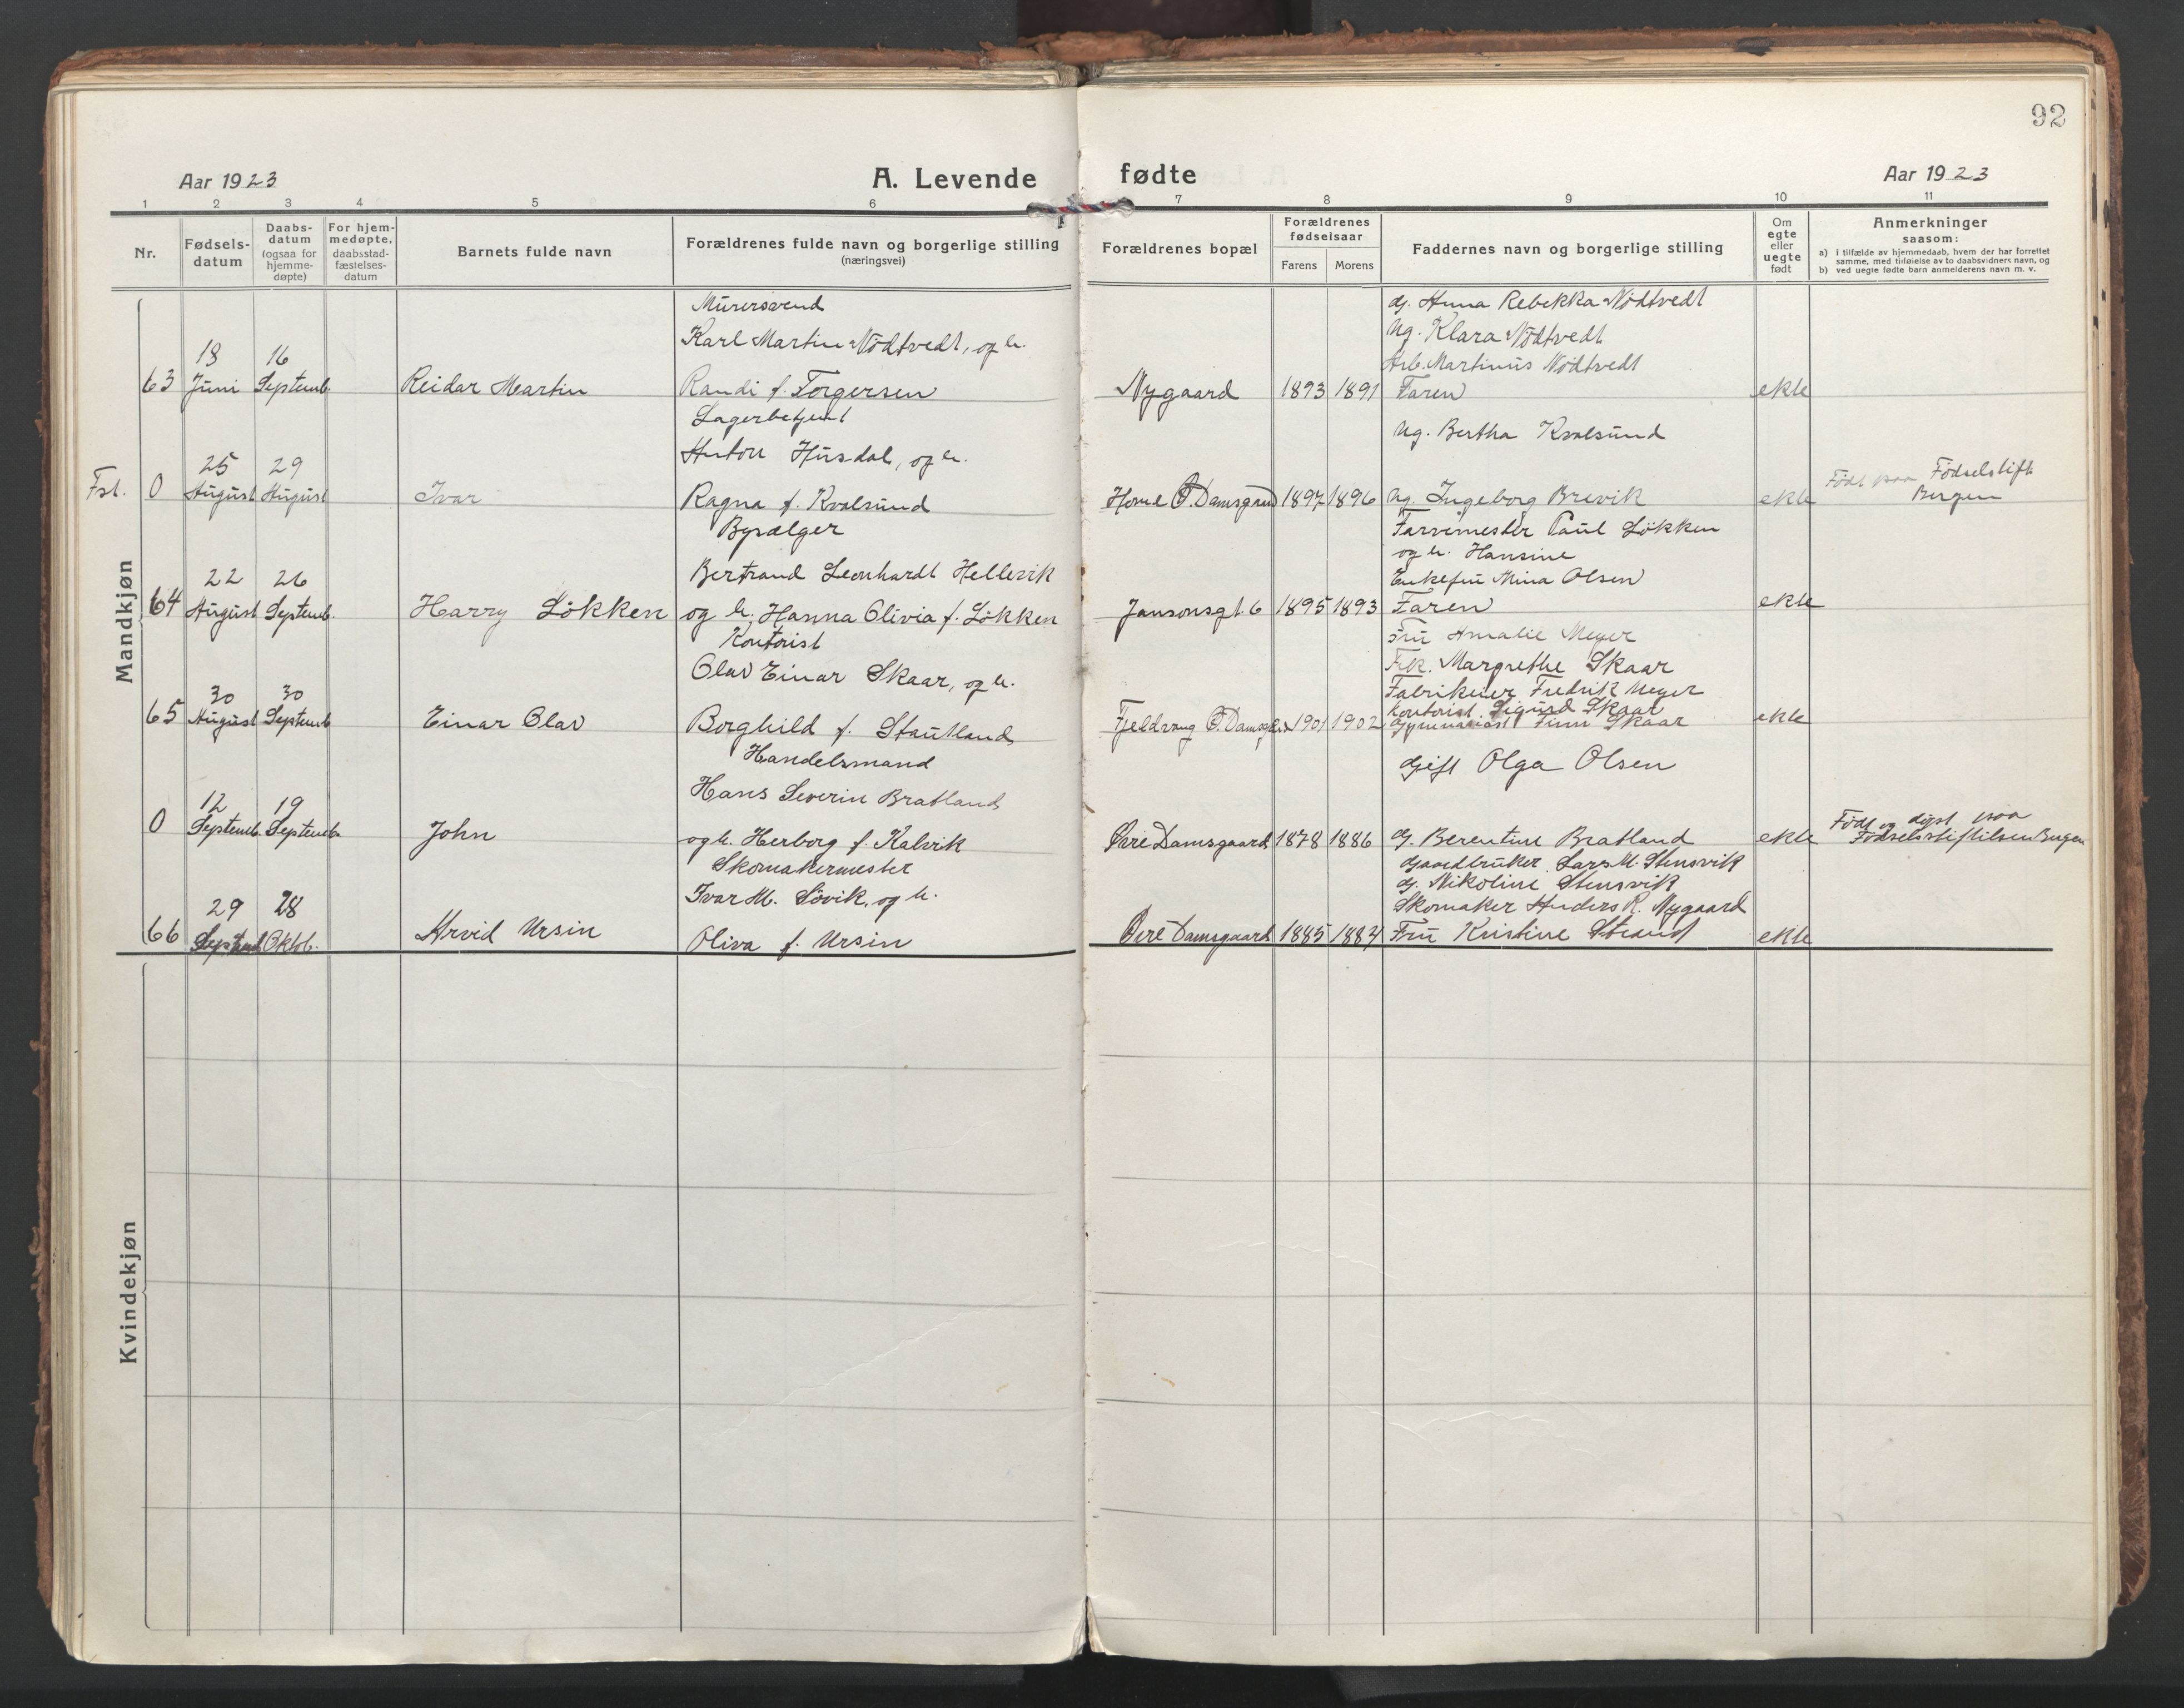 92
Aar 1923
A. Levende fødte
Aar 1923
1 2 3 4 5 6 7 8 9 10 11
Nr.
Fødsels-
datum
Daabs-
datum
(ogsaa for
hjemme-
døpte)
For hjem-
medøpte,
daabsstad-
fæstelses-
datum
Barnets fulde navn
Forældrenes fulde navn og borgerlige stilling
(næringsvei)
Forældrenes bopæl
Forældrenes
fødselsaar
Farens
Morens
Faddernes navn og borgerlige stilling
Om
egte
eller
uegte
født
Anmerkninger
saasom:
a) i tilfælde av hjemmedaab, hvem der har forrettet
samme, med tilføielse av to daabsvidners navn, og
b) ved uegte fødte barn anmelderens navn m. v.
Mandkjøn
63
18
Juni
16
Septemb.
Reidar Martin
Murersvend
Karl Martin Nödtvedt, og h.
Randi f. Torgersen
Nygaard
1893
1891
g. Anna Rebekka Nödtvedt
Ug. Klara Nödtvedt
Arb. Martinus Nödtvedt
Faren
ekte
Fst. 0
25
August
29
August
Ivar
Lagerbetjent
Anton Husdal, og h.
Ragna f. Kvalsund
Home Ö. Damsgaard
1897
1896
Ug. Bertha Kvalsund
Ug. Ingeborg Brevik
ekte
Födt paa Födselstift.
Bergen
64
22
August
26
Septemb.
Harry Lökken
Bysælger
Bertrand Leonhardt Hellesik
og h. Hanna Olivia f. Lökken
Jansonsgt. 6
1895
1893
Farvemester Paul Lökken
og h. Hansine
Enkefru Mina Olsen
Faren
ekte
65
30
August
30
Septemb
Einar Olav
Kontorist
Olav Einar Skaar, og h.
Borghild f. Stautland
Fjeldvang Ö. Damsgård
1901
1902
Fru Amalie Meyer
Frk. Margrethe Skaar
Fabrikeier Fredrik Meyer
Kontorist Sigurd Skaar
Gymnasiast Finn Skaar
ekte
0
12
Septemb.
19
Septemb.
John
Handelsmand
Hans Severin Bratland
og h. Herborg f. Kalvik
Övre Damsgaard
1878
1886
Gift Olga Olsen
G. Berentine Bratland
ekte
Födt og döpt paa
Födselsstiftelsen Bergen
66
29
Septemb
28
Oktob.
Arvid Ursin
Skomakermester
Ivar M. Sövik, og h.
Oliva f. Ursin
Övre Damsgaard
1885
1884
Gaardbruker Lars M. Stensvik
g. Nikoline Stensvik
Skomaker Anders R. Nygaard
Fru Kristine Strand
ekte
Kvindekjøn